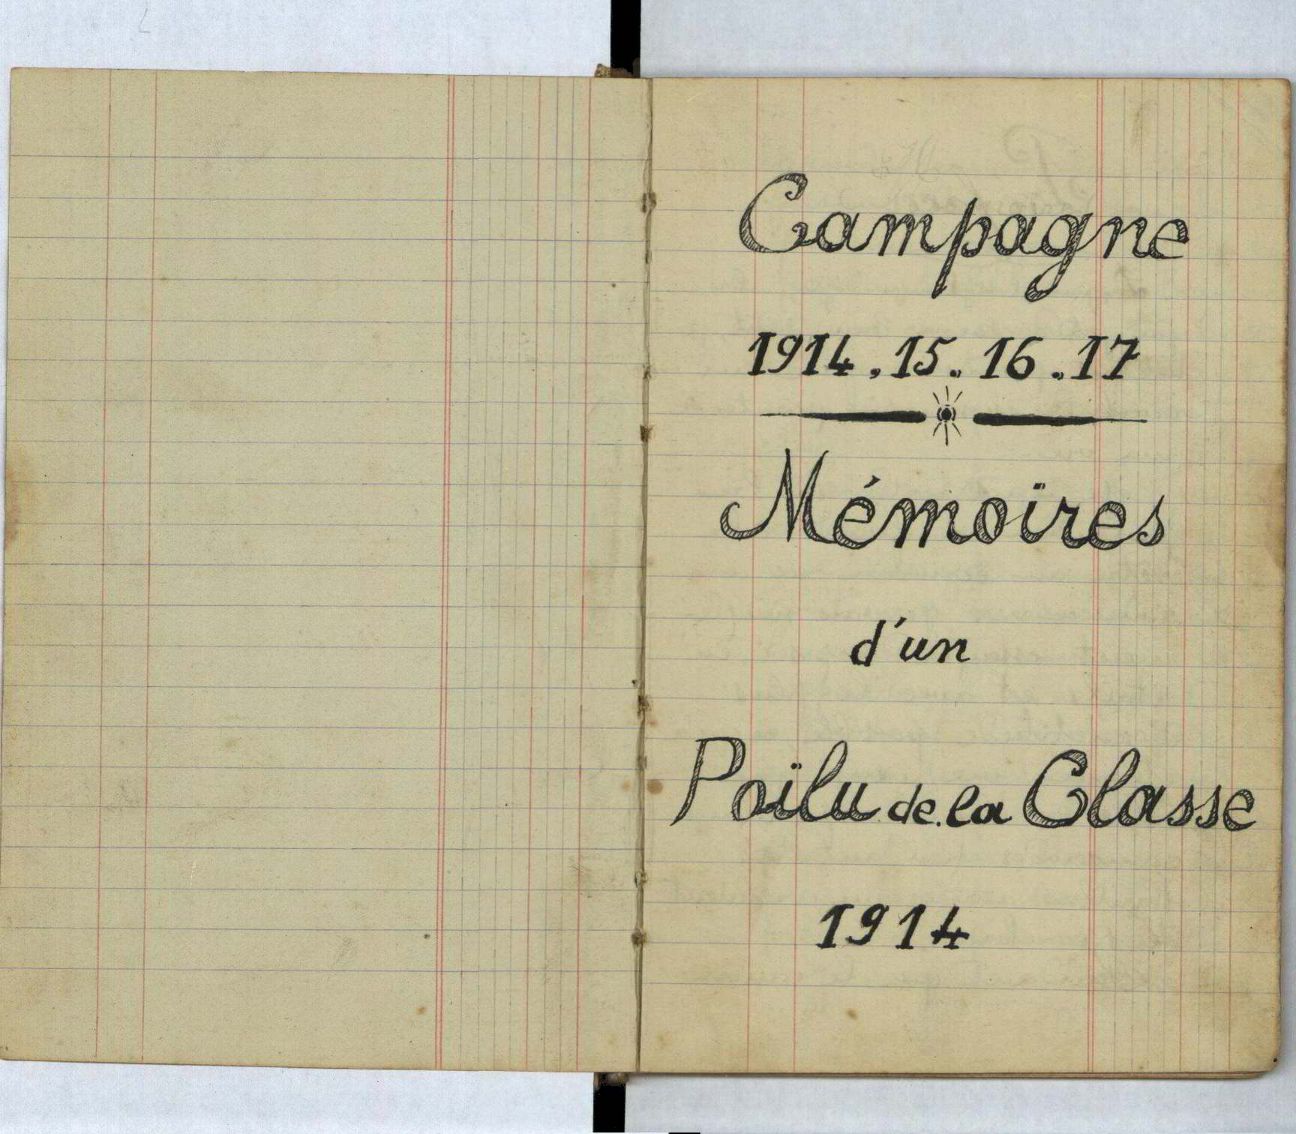 Campagne
1914.15.16.17
Mémoires
d'un
Poïlu de la Classe
1914